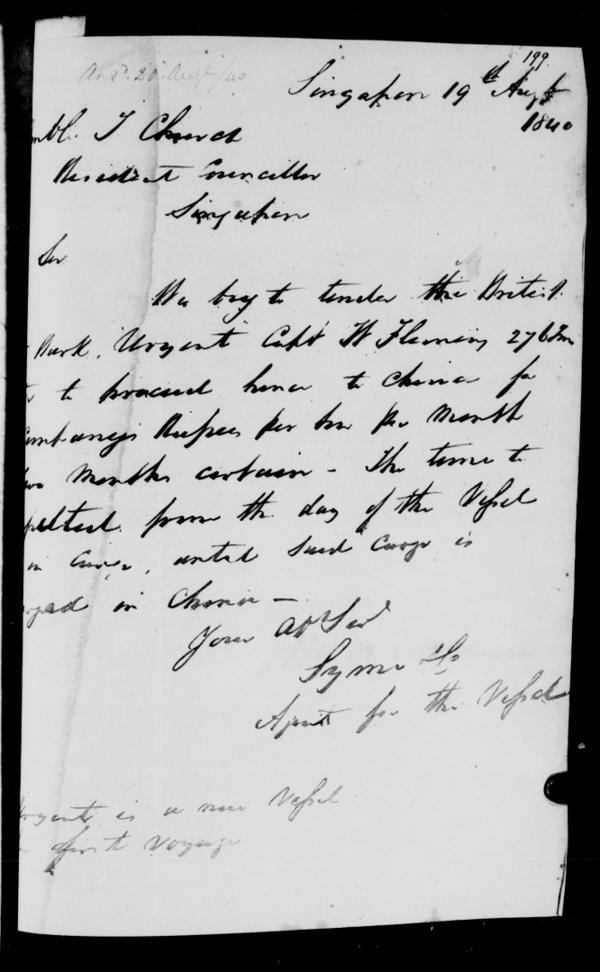 199
Ansd. 20 Augt/40
Singapore 19th Augt
1840
mbl. T Church
Resident Councillor
Singapore
Sir
We beg to tender the British
Bark, Urgent Capt W Fleming 276 Tons
to proceed hence to China for
Companys Rupees per ton per Month
two Months certain - The time to
from the day of the Vessel
in Cargo, until said Cargo is
in China -
Your Obt Servt
Syme & Co
Agents for the Vessel
Urgent is a new Vessel
first Voyage